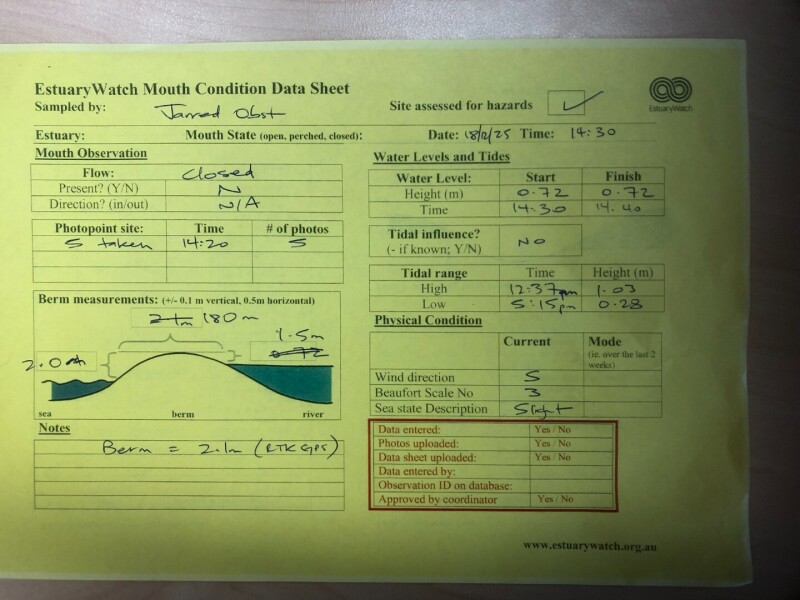 EstuaryWatch Mouth Condition Data Sheet
Sampled by: Jarred Obst
Site assessed for hazards ✓
EstuaryWatch
Estuary: Mouth State (open, perched, closed): Date: 18/12/25 Time: 14:30
Mouth Observation
Flow: Closed
Present? (Y/N) N
Direction? (in/out) N/A
Photopoint site: Time # of photos
5 taken 14:20 5
Berm measurements: (+/- 0.1 m vertical, 0.5m horizontal)
2.1m 180m
1.5m
0.72
2.0
sea berm river
Notes
Berm = 2.1m (RTK GPS)
Water Levels and Tides
Water Level: Start Finish
Height (m) 0.72 0.72
Time 14:30 14:40
Tidal influence?
(- if known; Y/N) NO
Tidal range Time Height (m)
High 12:37pm 1.03
Low 5:15pm 0.28
Physical Condition
Current Mode
(ie. over the last 2
weeks)
Wind direction S
Beaufort Scale No 3
Sea state Description Slight
Data entered: Yes / No
Photos uploaded: Yes / No
Data sheet uploaded: Yes / No
Data entered by:
Observation ID on database:
Approved by coordinator Yes / No
www.estuarywatch.org.au